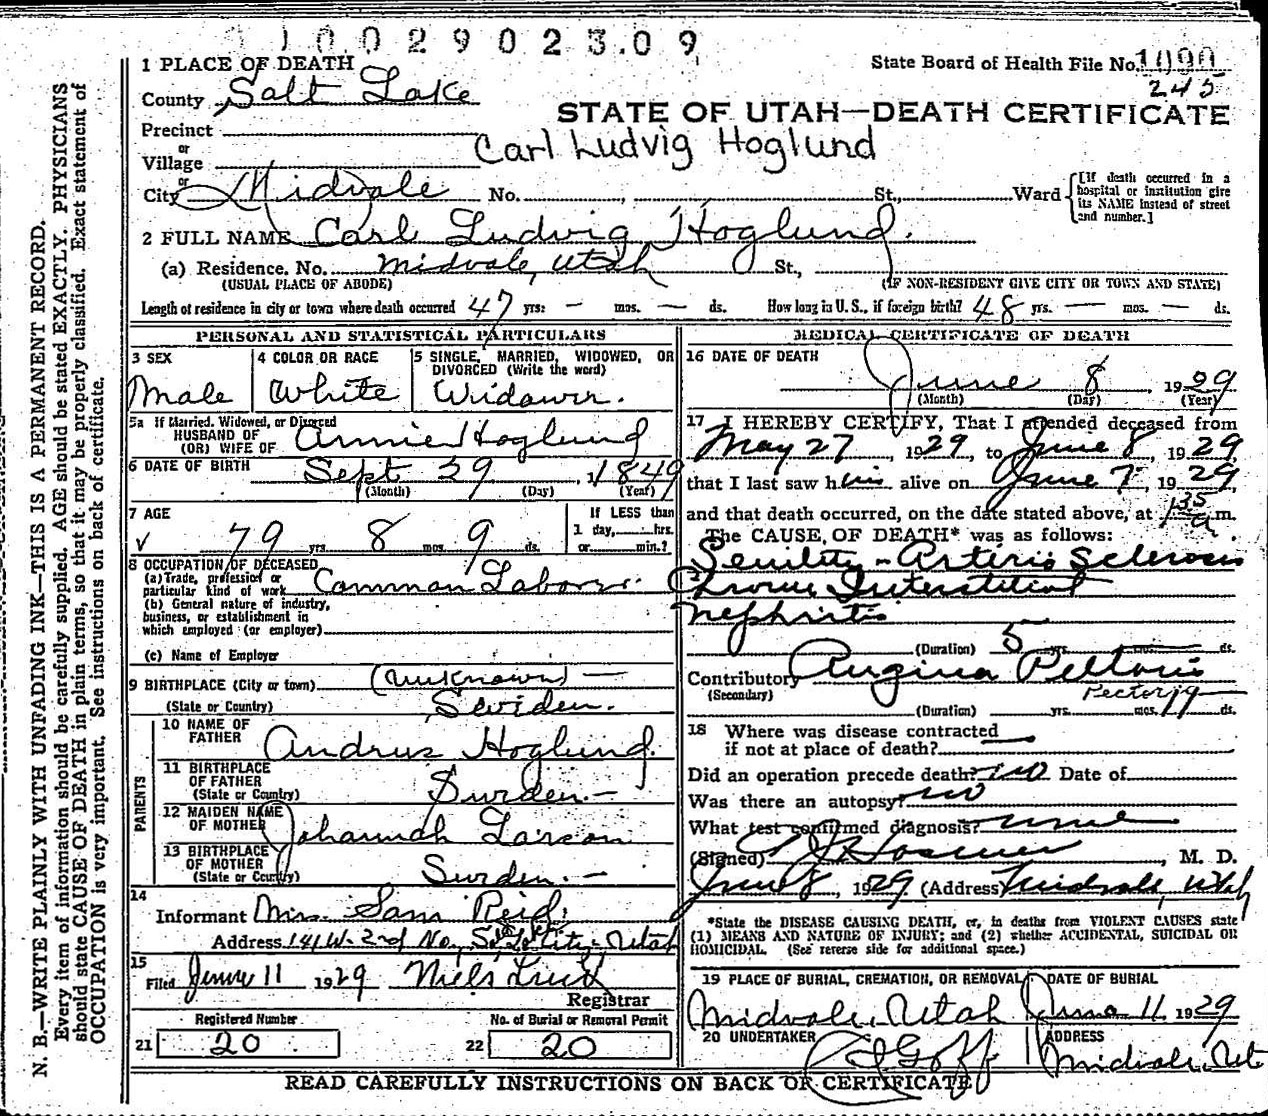 1 0 0 2 9 0 2 3 0 9
1 PLACE OF DEATH
State Board of Health File No. 1090
245
County Salt Lake
STATE OF UTAH—DEATH CERTIFICATE
Precinct
or
Carl Ludvig Hoglund
Village
or
City Midvale No. St., Ward
[If death occurred in a hospital or institution give its NAME instead of street and number.]
2 FULL NAME Carl Ludvig Hoglund.
(a) Residence. No. Midvale, Utah St.,
(USUAL PLACE OF ABODE) (IF NON-RESIDENT GIVE CITY OR TOWN AND STATE)
Length of residence in city or town where death occurred 47 yrs. — mos. — ds. How long in U. S., if foreign birth? 48 yrs. — mos. — ds.
PERSONAL AND STATISTICAL PARTICULARS
3 SEX
Male
4 COLOR OR RACE
White
5 SINGLE, MARRIED, WIDOWED, OR DIVORCED (Write the word)
Widower.
5a If Married, Widowed, or Divorced
HUSBAND OF
(OR) WIFE OF Annie Hoglund
6 DATE OF BIRTH Sept 29, 1849
(Month) (Day) (Year)
7 AGE
79 yrs. 8 mos. 9 ds.
If LESS than
1 day, hrs.
or min.?
8 OCCUPATION OF DECEASED
(a) Trade, profession or
particular kind of work Common Laborer.
(b) General nature of industry,
business, or establishment in
which employed (or employer)
(c) Name of Employer
9 BIRTHPLACE (City or town) (Unknown) —
(State or Country) Sweden.
PARENTS
10 NAME OF FATHER Andrus Hoglund.
11 BIRTHPLACE OF FATHER
(State or Country) Sweden.—
12 MAIDEN NAME OF MOTHER Johannah Larson
13 BIRTHPLACE OF MOTHER
(State or Country) Sweden.—
14
Informant Mrs. Sam Reid.
Address 141 W. 2nd No., Salt Lake City - Utah
15
Filed June 11 1929 Niels Lind
Registrar
Registered Number
21 20
No. of Burial or Removal Permit
22 20
MEDICAL CERTIFICATE OF DEATH
16 DATE OF DEATH
June 8, 1929
(Month) (Day) (Year)
17 I HEREBY CERTIFY, That I attended deceased from
May 27, 1929, to June 8, 1929
that I last saw him alive on June 7, 1929,
and that death occurred, on the date stated above, at 1 35 a m.
The CAUSE OF DEATH* was as follows:
Senility - Arterio Sclerosis
Chronic Interstitial
Nephritis
(Duration) 5 yrs. mos. ds.
Contributory Angina Pectoris
(Secondary) Pectoris
(Duration) yrs. mos. ds.
18 Where was disease contracted
if not at place of death?
Did an operation precede death? no Date of
Was there an autopsy? no
What test confirmed diagnosis? none
(Signed) , M. D.
June 8, 1929 (Address) Midvale, Utah
*State the DISEASE CAUSING DEATH, or, in deaths from VIOLENT CAUSES state
(1) MEANS AND NATURE OF INJURY; and (2) whether ACCIDENTAL, SUICIDAL OR
HOMICIDAL. (See reverse side for additional space.)
19 PLACE OF BURIAL, CREMATION, OR REMOVAL
Midvale, Utah
DATE OF BURIAL
June 11 1929
20 UNDERTAKER
Goff
ADDRESS
Midvale, Ut
READ CAREFULLY INSTRUCTIONS ON BACK OF CERTIFICATE
N. B.—WRITE PLAINLY WITH UNFADING INK—THIS IS A PERMANENT RECORD.
Every item of information should be carefully supplied. AGE should be stated EXACTLY. PHYSICIANS
should state CAUSE OF DEATH in plain terms, so that it may be properly classified. Exact statement of
OCCUPATION is very important. See instructions on back of certificate.